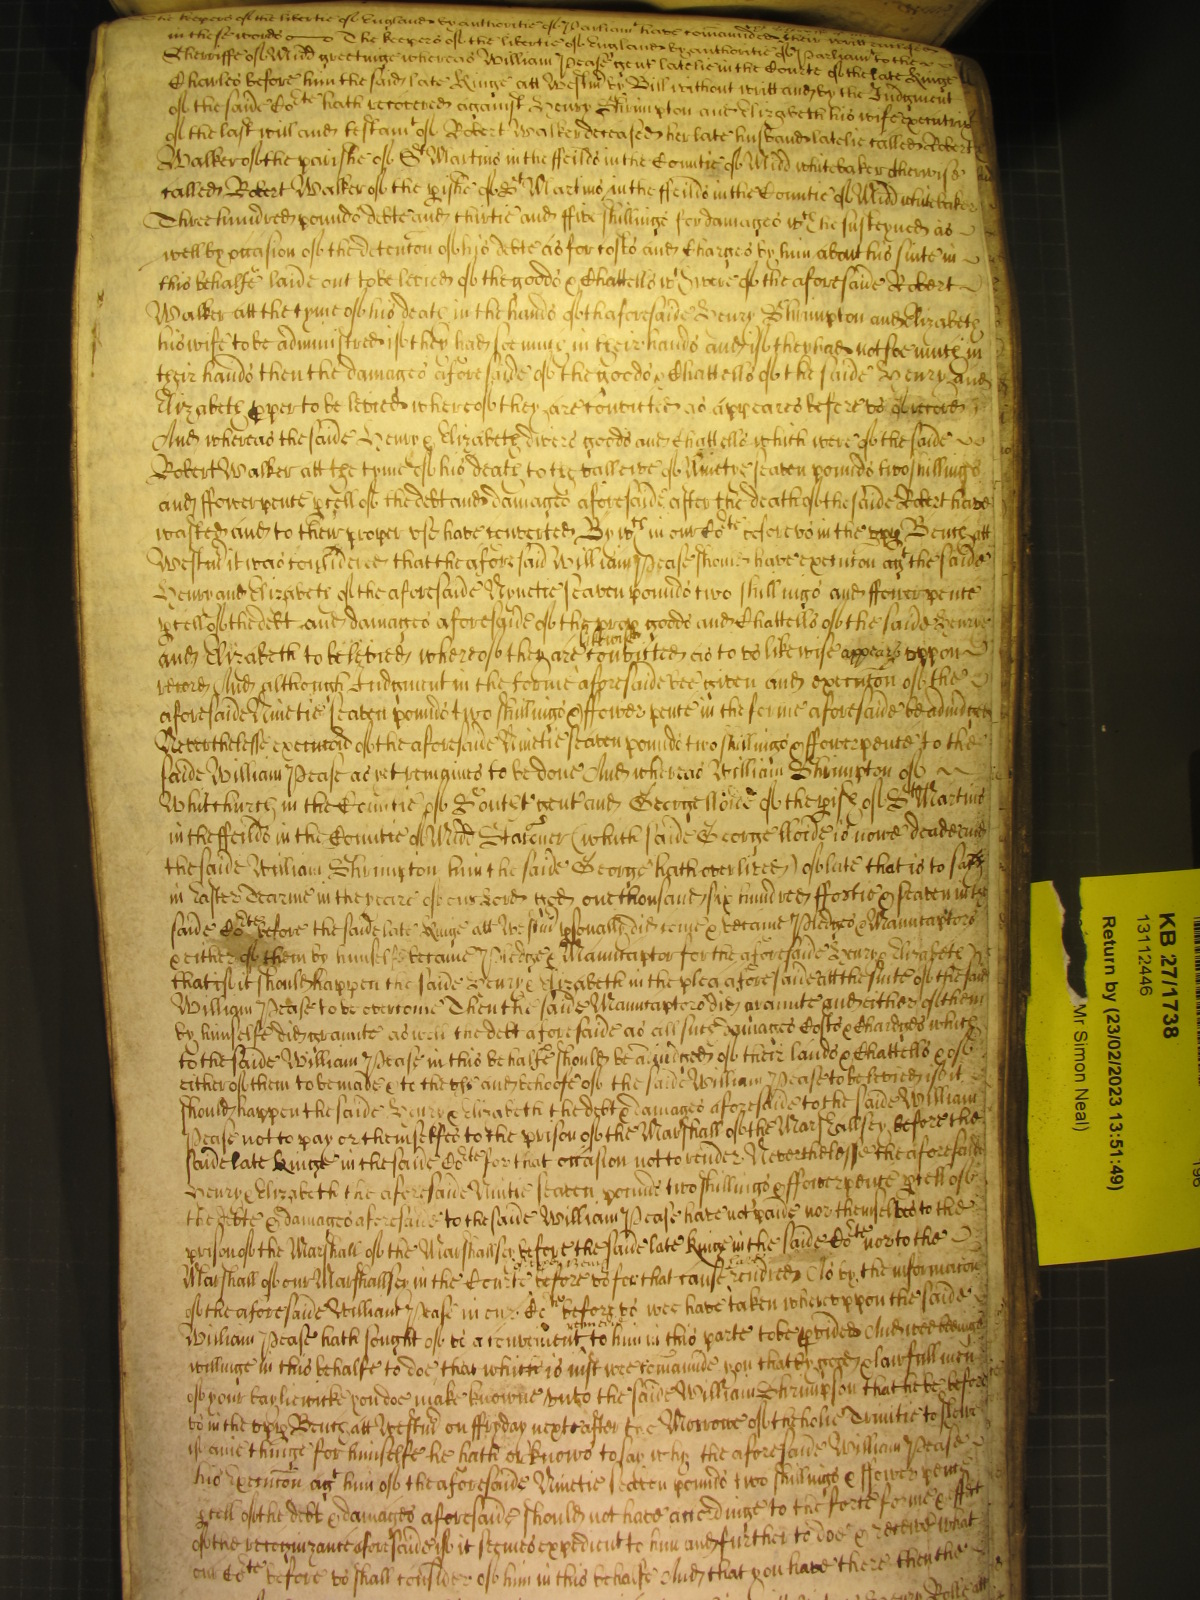 The keepers of the libertie of England by authoritie of Parliamt have comaunded their writt
in these words The keepers of the libertie of England by authoritie of Parliamt to the
Sherriffe of Midd greetinge whereas William Pease gent latelie in the Courte of the late Kinge
Charles before him the said late Kinge att Westmr by Bill without writt and by the Judgment
of the same Cote hath recovered against Henry Shrimpton and Elizabeth his wife executrix
of the last will and testamt of Robert Walker deceased her late husband latelie called Robert
Walker of the parishe of St Martins in the ffeilds in the Countie of Midd whitebaker otherwise
called Robert Walker of the pishe of St Martins in the ffeilds in the Countie of Midd whitebaker
Three hundred pounds debte and thirtie and ffive shillings for damages wch he susteyned as
well by occasion of the detencon of his debte as for costs and charges by him about his suite in
this behalfe laide out to be levied of the goods & Chattells wch were of the aforesaide Robert
Walker att the tyme of his death in the hands of thaforesaide Henry Shrimpton and Elizabeth
his wife to be administred if they had soe much in their hands and if they had not soe much in
their hands then the damages aforesaide of the goods & Chattells of the saide Henry and
Elizabeth pper to be levied whereof they are convicted as appeares before us of record
And whereas the saide Henry & Elizabeth divers goods and Chattells which were of the saide
Robert Walker att the tyme of his death to the vallewe of Ninetye seaven pounds two shillings
and ffowerpence pcell of the debt and damages aforesaide after the death of the saide Robert have
wasted and to their proper use have converted By wch in our Cote before us in the upp Bench att
Westmr it was considered that the aforesaid William Pease should have execucon agt the saide
Henry and Elizabeth of the aforesaide Nynetie seaven pounds two shillings and ffowerpence
pcell of the debt and damages aforesaide of the prop goods and Chattells of the saide Henrie
likewise
and Elizabeth to be levied whereof they are convicted as to us likewise appears uppon
record And although Judgment in the forme aforesaide bee given and execucon of the
aforesaide Ninetie seaven pounds two shillings & ffower pence in the forme aforesaide be adiudged
Neverthelesse execucon of the aforesaide Ninetie seaven pounds two shillings & ffowerpence to the
saide William Pease as yet remaines to be done And whereas William Shrimpton of
Whitchurch in the Countie of Southt gent and George of the pish of St Martins
in the ffeilds in the Countie of Midd (which saide George is nowe dead and
the saide William Shrimpton him the saide George hath overlived) of late that is to saye
in Easter Tearme in the yeare of our Lord God one thousand six hundred ffortie & seaven in the
saide Cote before the said late Kinge att Westmr psonally did come & became Pledges & Mainucaptors
& either of them by himselfe became Pledge & Mainucaptor for the aforesaide Henry & Elizabeth
that if it should happen the saide Henry & Elizabeth in the plea aforesaide att the suite of the said
William Pease to be overcome Then the saide Mainucaptors did graunte and either of them
by himselfe did graunte as well the debt aforesaide as all such damages Costs & Chardges which
to the saide William Pease in this behalfe should be adiudged of their lands & Chattells & of
either of them to be made & to the use and behoofe of the saide William Pease to be levied if it
should happen the saide Henry & Elizabeth the debt & damages aforesaide to the saide William
Pease not to pay or themselfes to the prison of the Marshall of the Marshallsey before the
saide late Kinge in the saide Cote for that occasion not to render Neverthelesse the aforesaide
Henry & Elizabeth the aforesaide Nintie seaven pounds two shillings & ffowerpence pcell of
the debte & damages aforesaide to the saide William Pease have not paide nor themselves to the
prison of the Marshall of the Marshallsey before the saide late Kinge in the saide Cote nor to the
Marshall of our Marshallsey in the Courte before us for that cause rendred As by the informacon
of the aforesaide William Pease in our Cote before us wee have taken whereuppon the saide
William Pease hath sought of us a convenient to him in this parte to be pvided And wee beinge
willinge in this behalfe to doe that which is just wee comaunde you that by good & lawfull men
of your bayliewicke you doe make knowne unto the saide William Shrimpton that he be before
us in the upp Bench att Westmr on ffryday next after the Morrowe of the holie Trinitie to shewe
if anie thinge for himselfe he hath or knows to say why the aforesaide William Pease
his execucon agt him of the aforesaide Ninetie seaven pounds two shillings & ffower pence
pcell of the debt & damages aforesaide should not have accordinge to the force forme & effect
of the recognizance aforesaide if it seemes expedient to him and further to doe & receive what
our Cote before us shall consider of him in this behalfe And that you have there then the
Henry Rolle att
KB 27/1738
13112446
Return by (23/02/2023 13:51:49)
Mr Simon Neal)